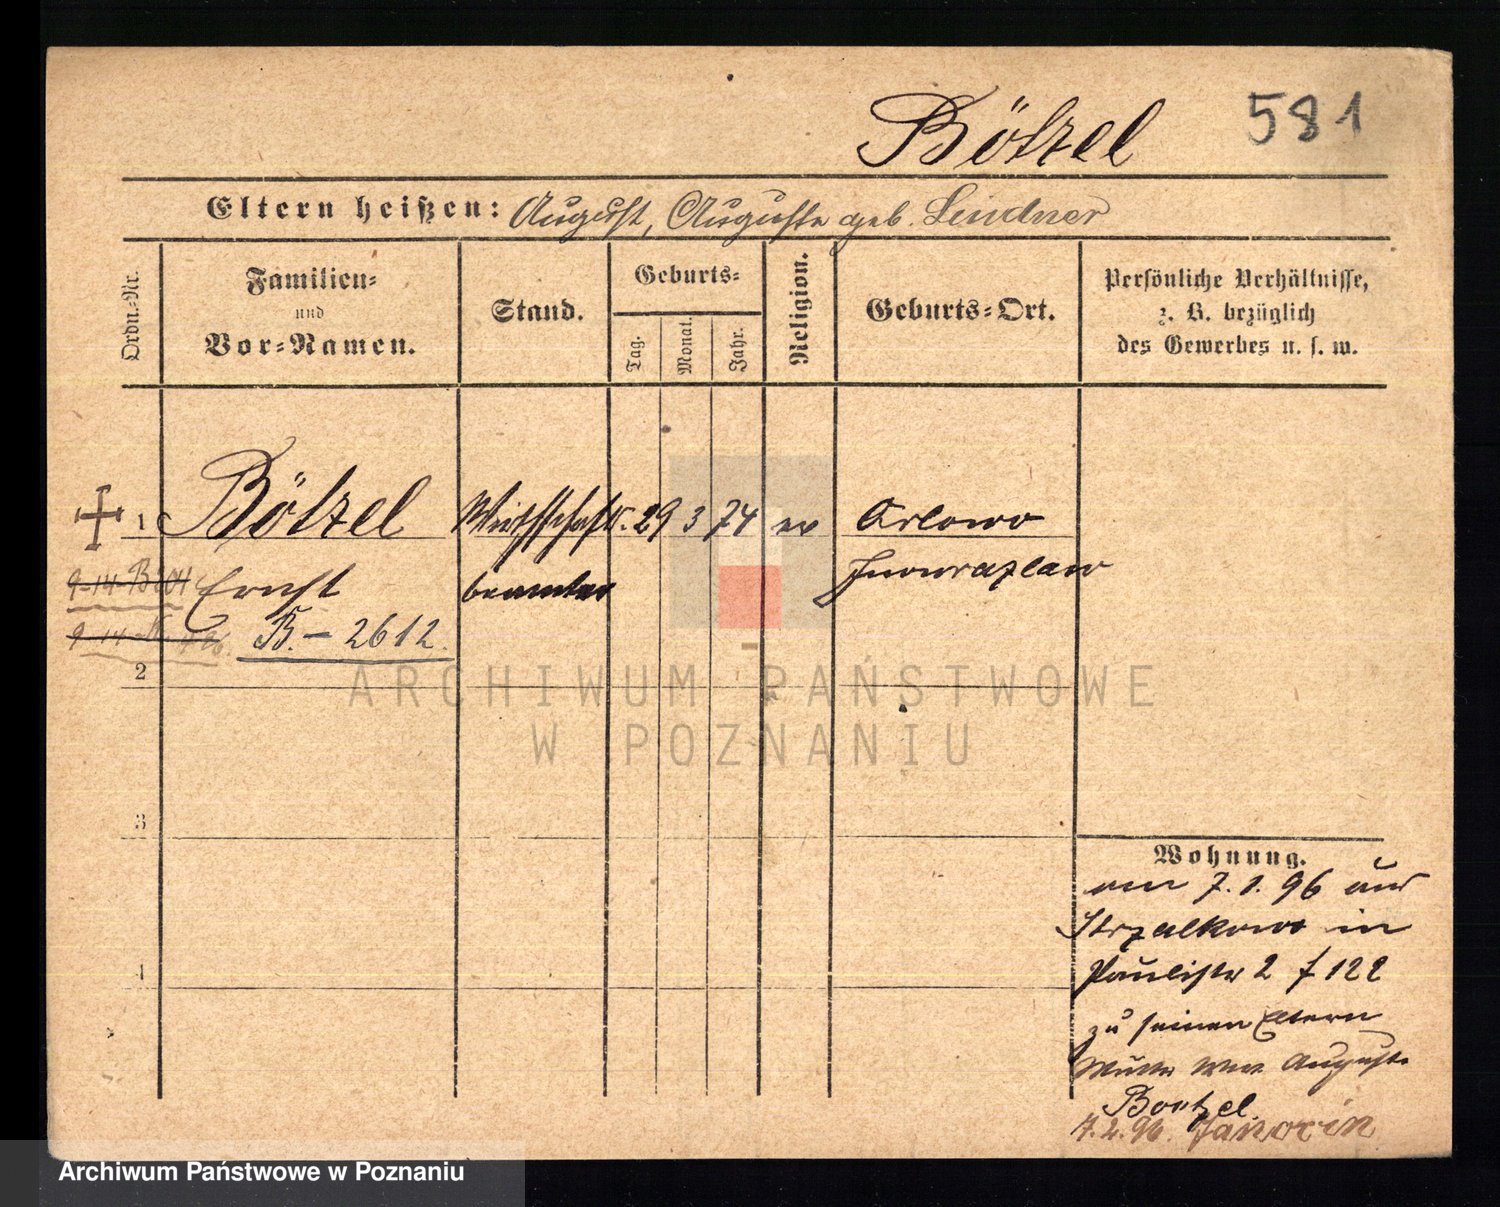 581
Bötzel
Eltern heißen: August, Auguste geb. Lindner
Ordn.-Nr.
Familien-
und
Vor-Namen.
Stand.
Geburts-
Tag.
Monat.
Jahr.
Religion.
Geburts-Ort.
Persönliche Verhältnisse,
z. B. bezüglich
des Gewerbes u. s. w.
1 Bötzel Wirthschafts. 29 3 74 ev Orlowo
9-14-B201 Ernst beamter Inowrazlaw
B. - 2612.
2
3
4
Wohnung.
am 7.1.96 aus
Strzalkowo in
Paulistr 2 f 122
zu seinen Eltern
Mutter Wwe Auguste
Boetzel
7.2.96. Janocin
ARCHIWUM PAŃSTWOWE
W POZNANIU
Archiwum Państwowe w Poznaniu